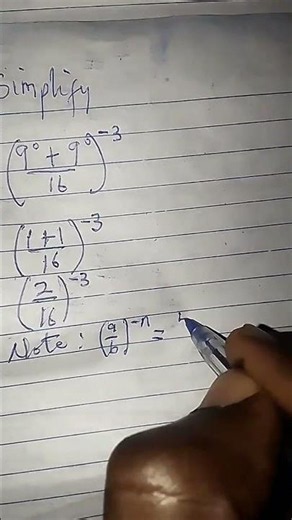 Simplify
((9⁰ + 9⁰)/16)⁻³
((1+1)/16)⁻³
(2/16)⁻³
Note: (a/b)⁻ⁿ =